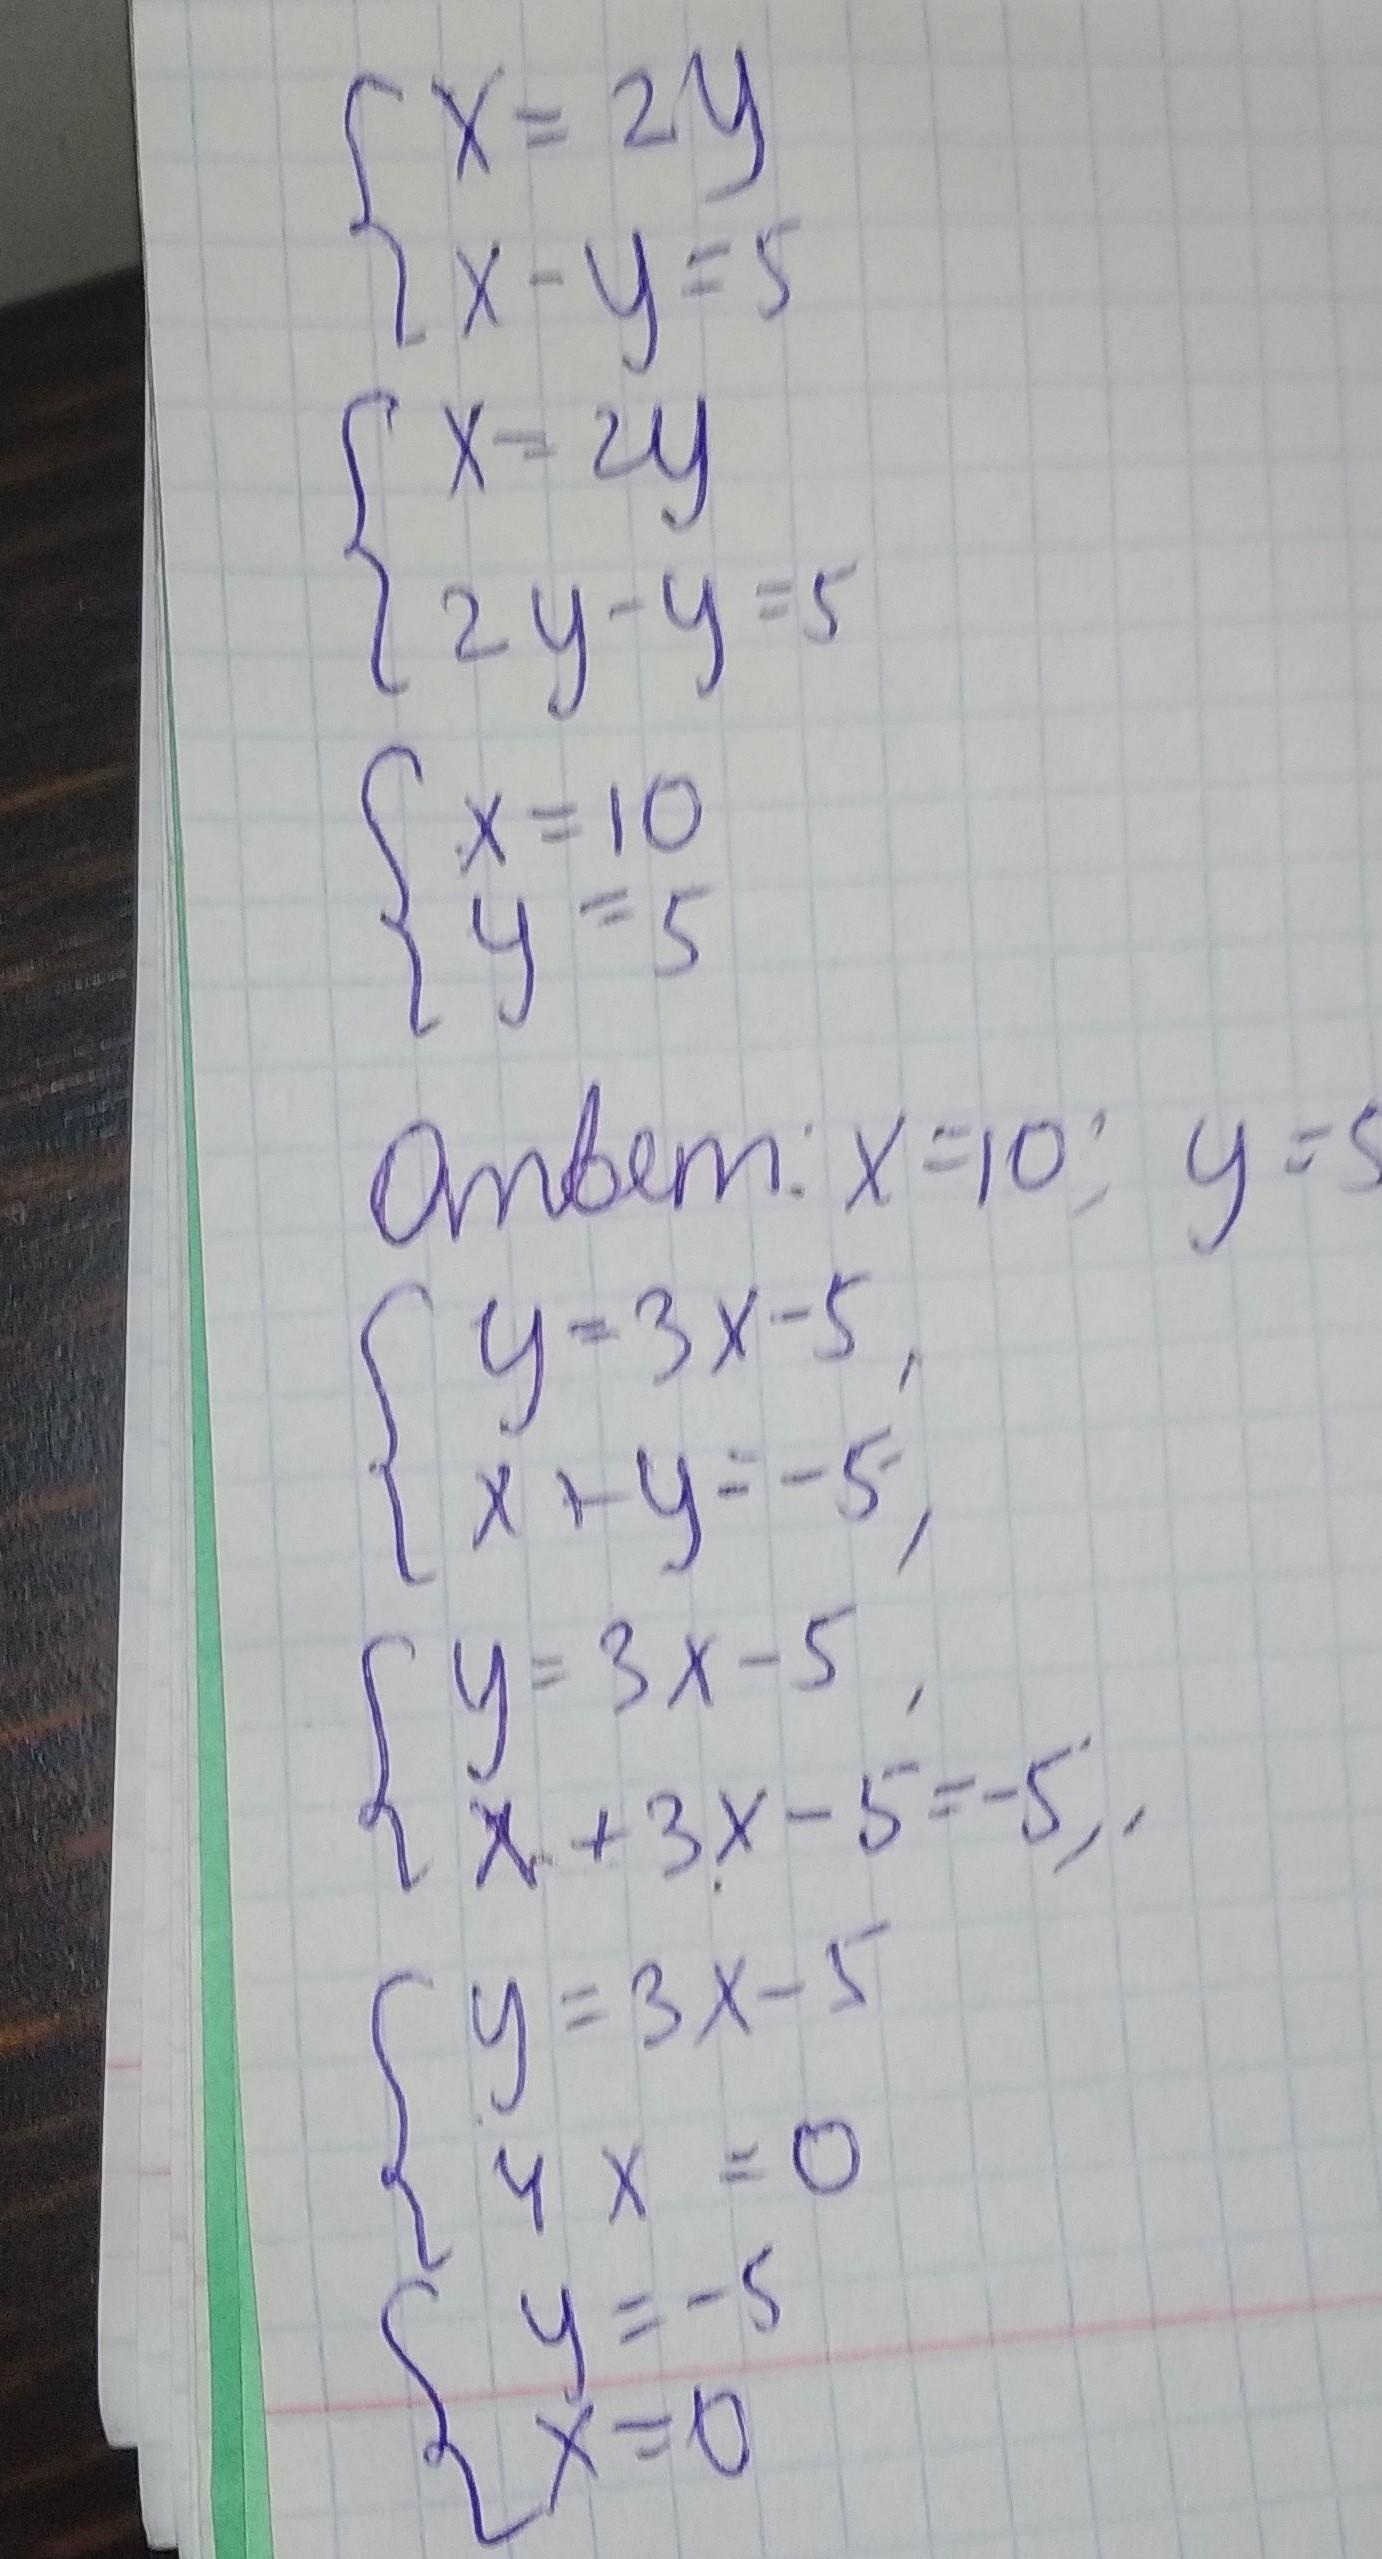 x = 2y
x - y = 5
x = 2y
2y - y = 5
x = 10
y = 5
Ответ: x = 10; y = 5
y = 3x - 5,
x + y = -5,
y = 3x - 5,
x + 3x - 5 = -5,,
y = 3x - 5
4x = 0
y = -5
x = 0